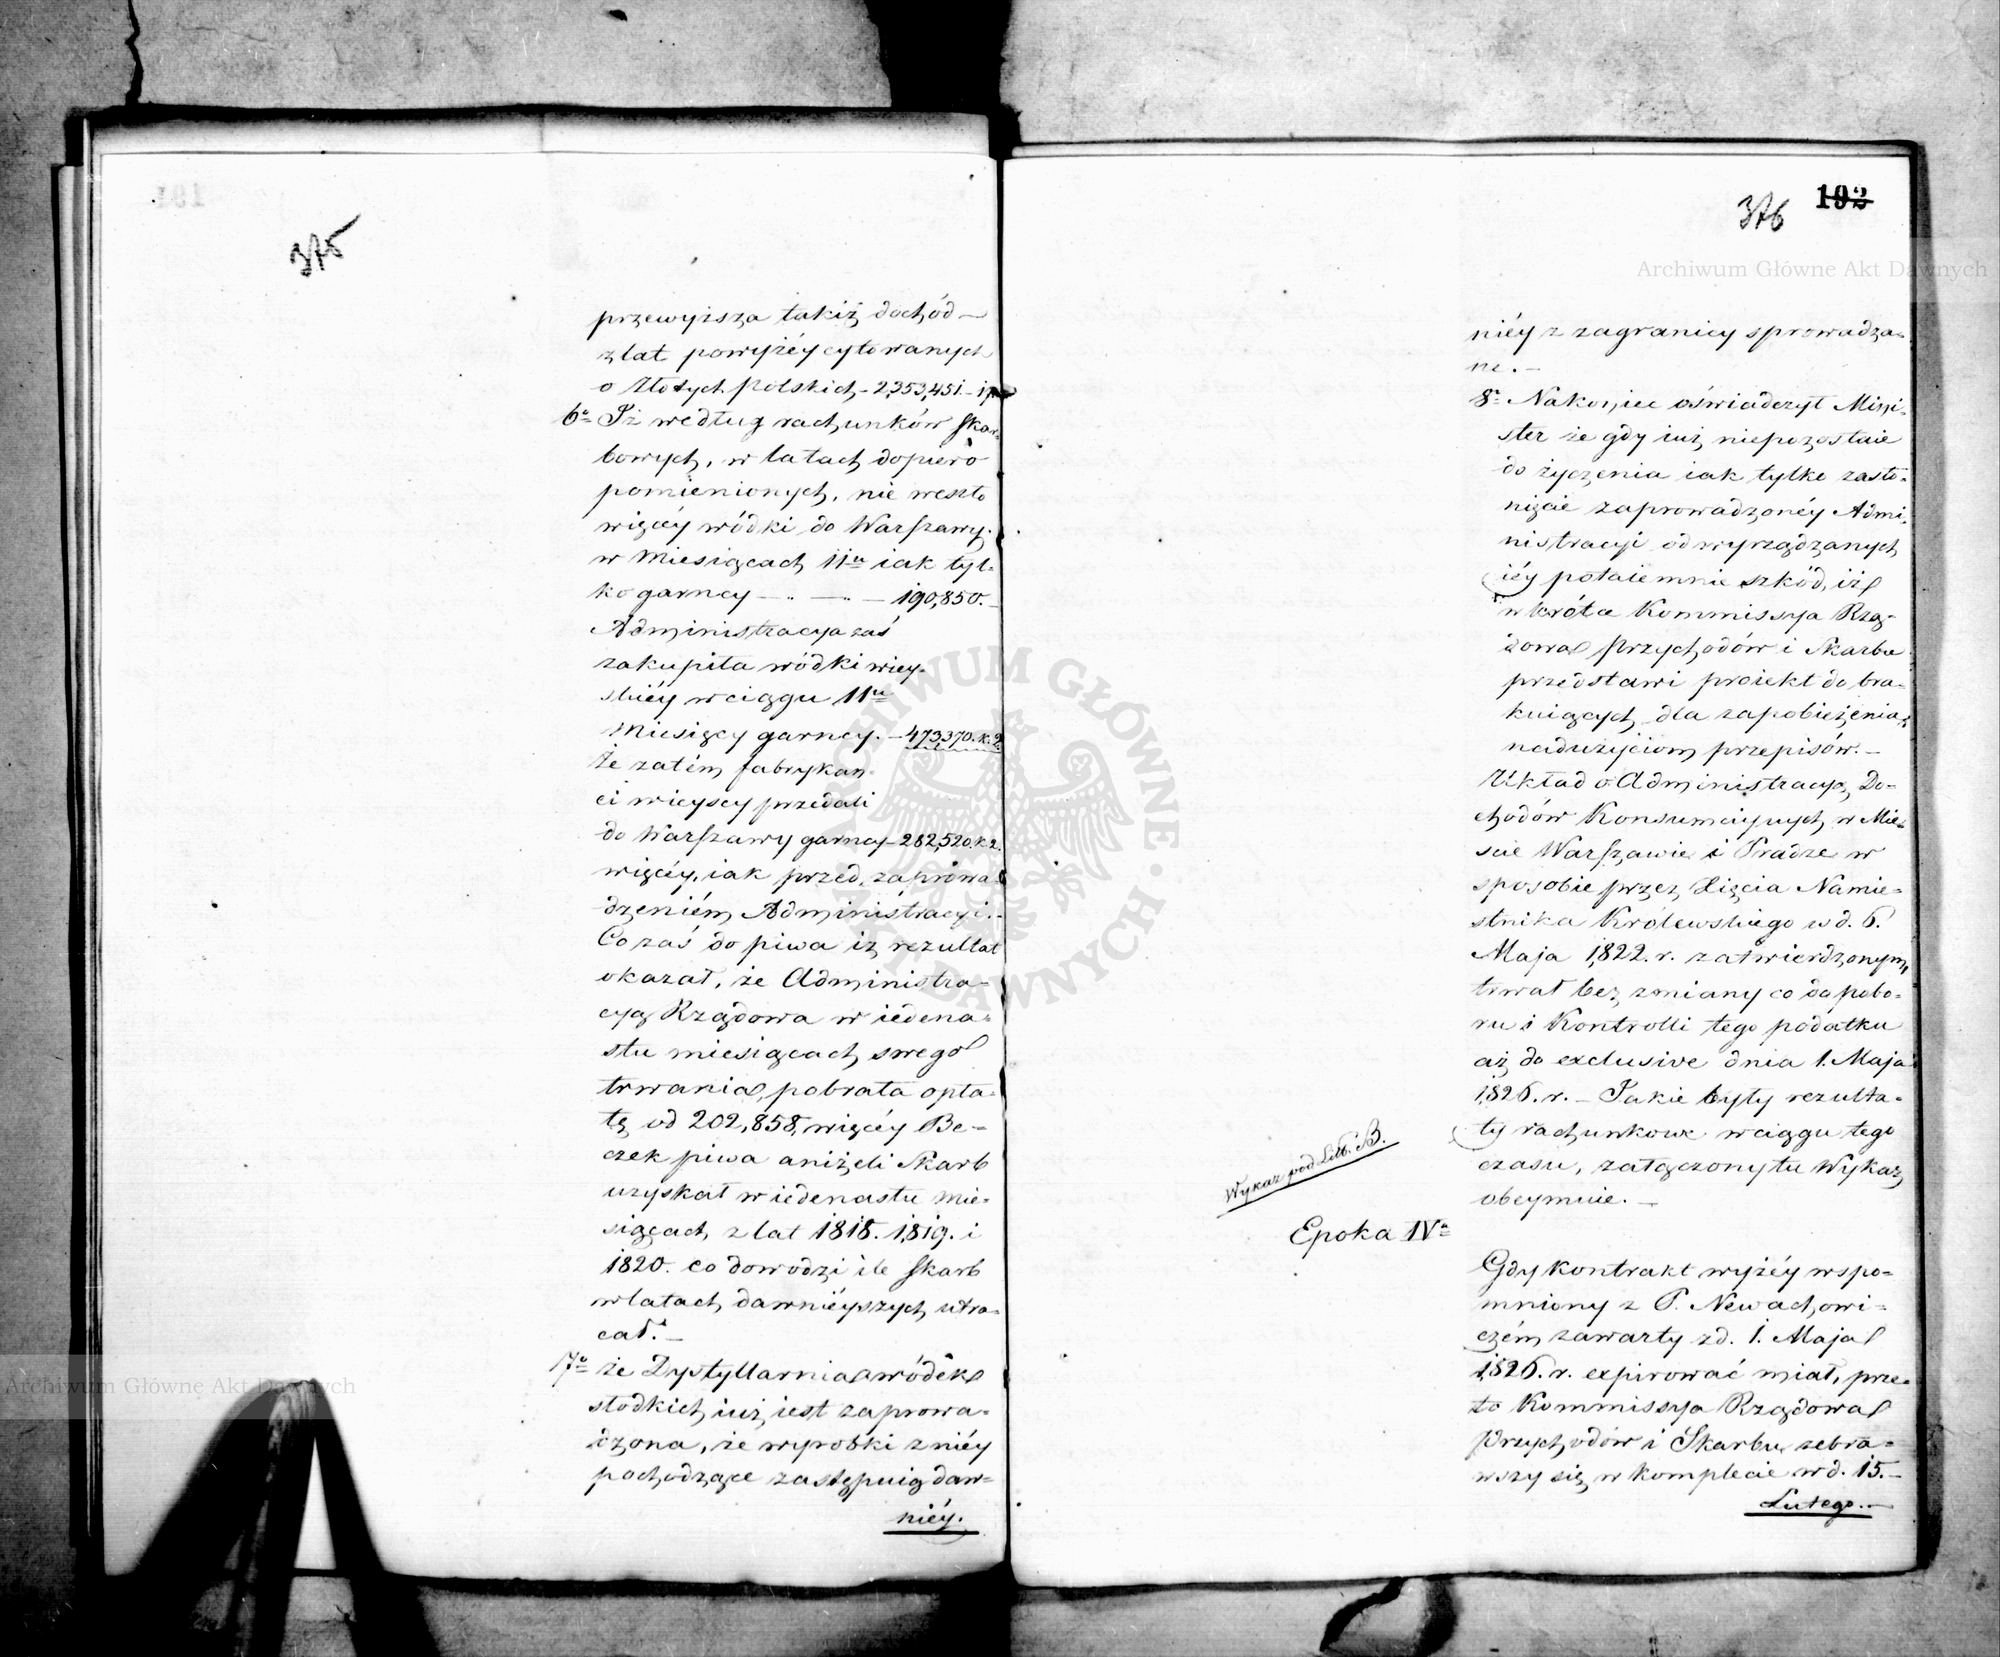 375
przewyższa takiż dochód —
z lat powyżéy cytowanych
o Złotych polskich – 2,353,451. –
6o Iż według rachunków Skar-
bowych, w latach dopiero
pomienionych, nie weszło
więcéy wódki do Warszawy.
w Miesiącach 11u iak tyl-
ko garncy — .. — .. — 190,850. –
Administracya zaś
zakupiła wódki wiey-
skiéy w ciągu 11u
Miesięcy garncy. – 473,370. k. 2.
Że zatém fabrykan-
ci wieyscy przedali
do Warszawy garncy – 282,520. k. 2.
więcéy, iak przed zaprowa-
dzeniém Administracyi. –
Co zaś do piwa iż rezultat
okazał, że Administra-
cya Rządowa w iedena-
stu miesiącach swego
trwania, pobrała opła-
tę od 202,858, więcéy Be-
czek piwa aniżeli Skarb
uzyskał w iedenastu mie-
siącach z lat 1818. 1819. i
1820. co dowodzi ile Skarb
w latach dawniéyszych utra-
cał. –
7o że Dystyllarnia wódek
słodkich iuż iest zaprowa-
dzona, że wyrobki z niéy
pochodzące zastępuią daw-
niéy.
376 192
Archiwum Główne Akt Dawnych
niéy z zagranicy sprowadza-
ne. –
8o Nakoniec oświadczył Mini-
ster że gdy iuż niepozostaie
do życzenia iak tylko zasło-
nięcie zaprowadzonéy Admi-
nistracyi od wyrządzanych
iéy potaiemnie szkód, iż
wkrótce Kommissya Rzą-
dowa Przychodów i Skarbu
przedstawi proiekt do bra-
kuiących dla zapobieżenia
nadużyciom przepisów. –
Układ o Administracyą Do-
chodów Konsumcyinych w Mie-
ście Warszawie i Pradze w
sposobie przez Xięcia Namie-
stnika Królewskiego w d. 6.
Maja 1822. r. zatwierdzonym,
trwał bez zmiany co do pobo-
ru i Kontrolli tego podatku
aż do exclusive dnia 1. Maja
1826. r. – Jakie były rezulta-
ty rachunkowe w ciągu tego
czasu, załączony tu Wykaz
obeymuie. –
Wykaz pod Litt. B.
Epoka IVa
Gdy Kontrakt wyżéy wspo-
mniony z P. Newachowi-
czém zawarty z d. 1. Maja
1826. r. expirować miał, prze-
to Kommissya Rządowa
Przychodów i Skarbu zebra-
wszy się w komplecie w d. 15. –
Lutego. –
ARCHIWUM GŁÓWNE AKT DAWNYCH
Archiwum Główne Akt Dawnych